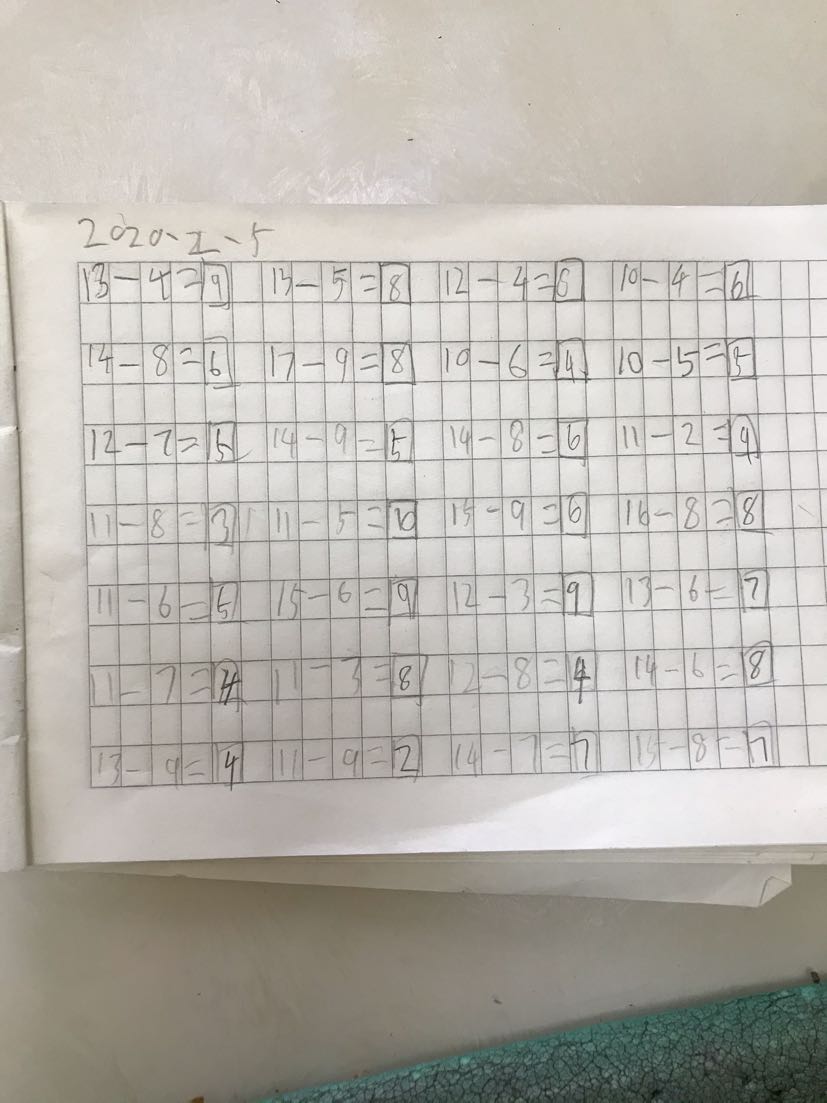 2020-2-5
13-4=9 13-5=8 12-4=8 10-4=6
14-8=6 17-9=8 10-6=4 10-5=5
12-7=5 14-9=5 14-8=6 11-2=9
11-8=3 11-5=10 15-9=6 16-8=8
11-6=5 15-6=9 12-3=9 13-6=7
11-7=4 11-3=8 12-8=4 14-6=8
13-9=4 11-9=2 14-7=7 15-8=7